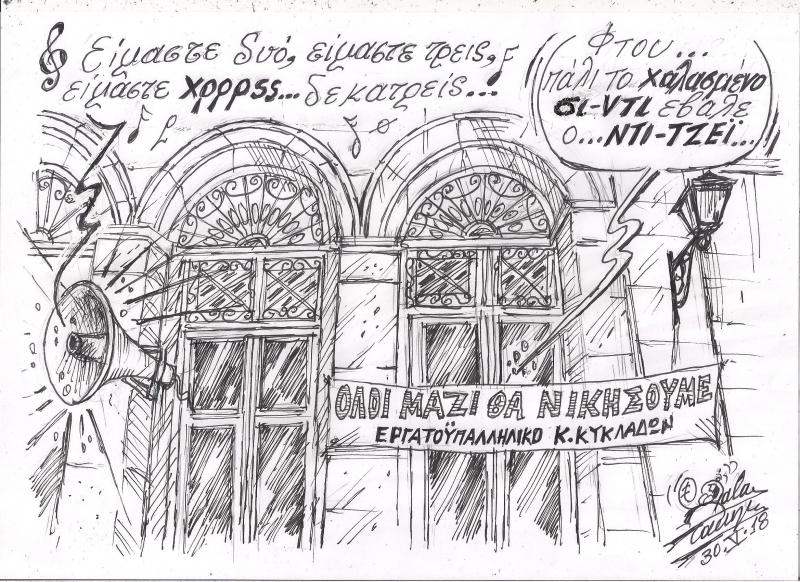 Είμαστε δυό, είμαστε τρεις,
είμαστε χρρρςς... δεκατρείς...
Φτου...
πάλι το χαλασμένο
σι-ντι έβαλε
ο... ΝΤΙ-ΤΖΕΪ...
ΟΛΟΙ ΜΑΖΙ ΘΑ ΝΙΚΗΣΟΥΜΕ
ΕΡΓΑΤΟΫΠΑΛΛΗΛΙΚΟ Κ. ΚΥΚΛΑΔΩΝ
30.V.18